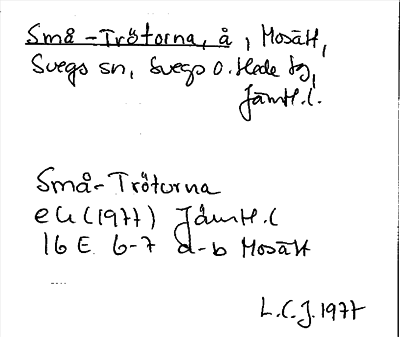 Små-Trötorna, å, Mosätt,
Svegs sn, Svegs o. Hede tg,
Jämtl. l.
Små-Tröturna
ek (1977) Jämtl. l
16 E 6-7 a-b Mosätt
L.C.J. 1977